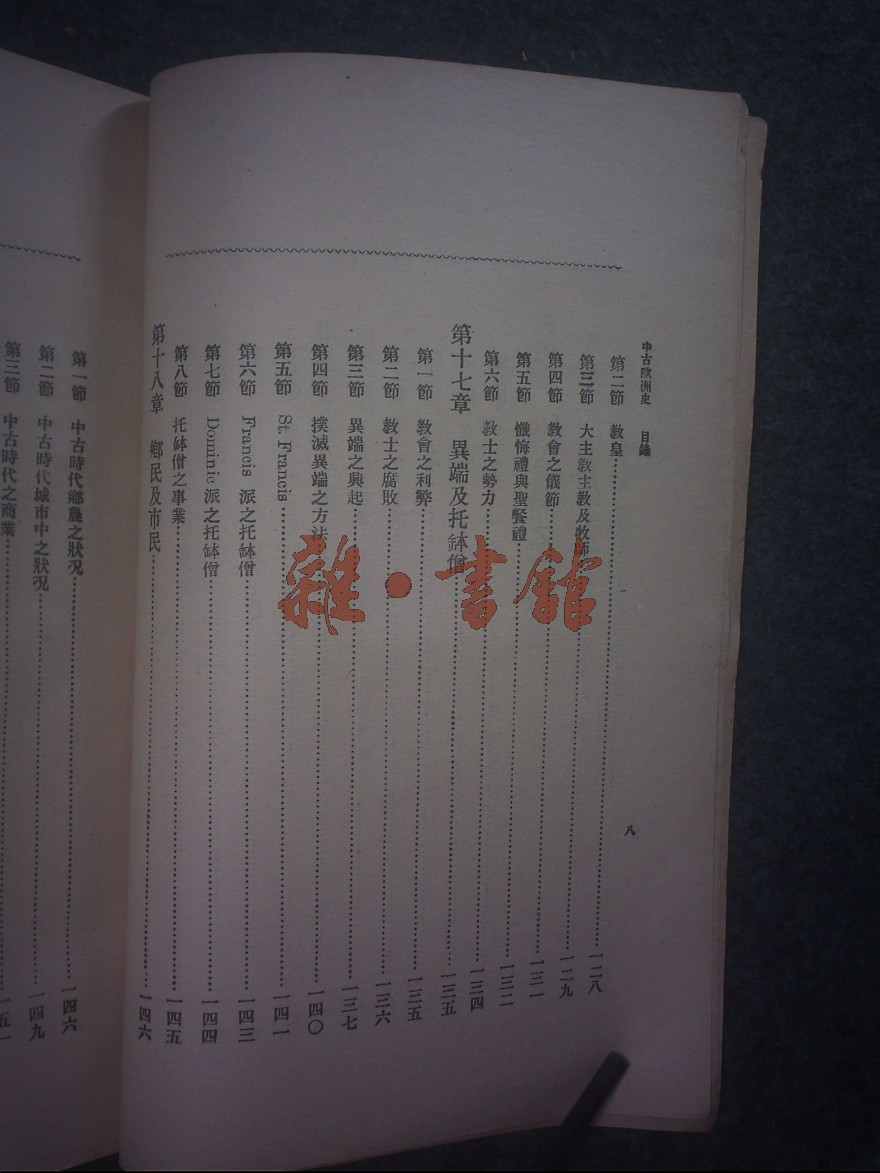 中古歐洲史　目錄
八
第二節　教皇……一二八
第三節　大主教主教及牧師……一二九
第四節　教會之儀節……一三一
第五節　懺悔禮與聖餐禮……一三二
第六節　教士之勢力……一三四
第十七章　異端及托鉢僧……一三五
第一節　教會之利弊……一三五
第二節　教士之腐敗……一三六
第三節　異端之興起……一三七
第四節　撲滅異端之方法……一四〇
第五節　St. Francis……一四一
第六節　Francis 派之托鉢僧……一四三
第七節　Dominic 派之托鉢僧……一四四
第八節　托鉢僧之事業……一四五
第十八章　鄉民及市民……一四六
第一節　中古時代鄉農之狀況……一四六
第二節　中古時代城市中之狀況……一四九
第三節　中古時代之商業……一五一
雜·書館